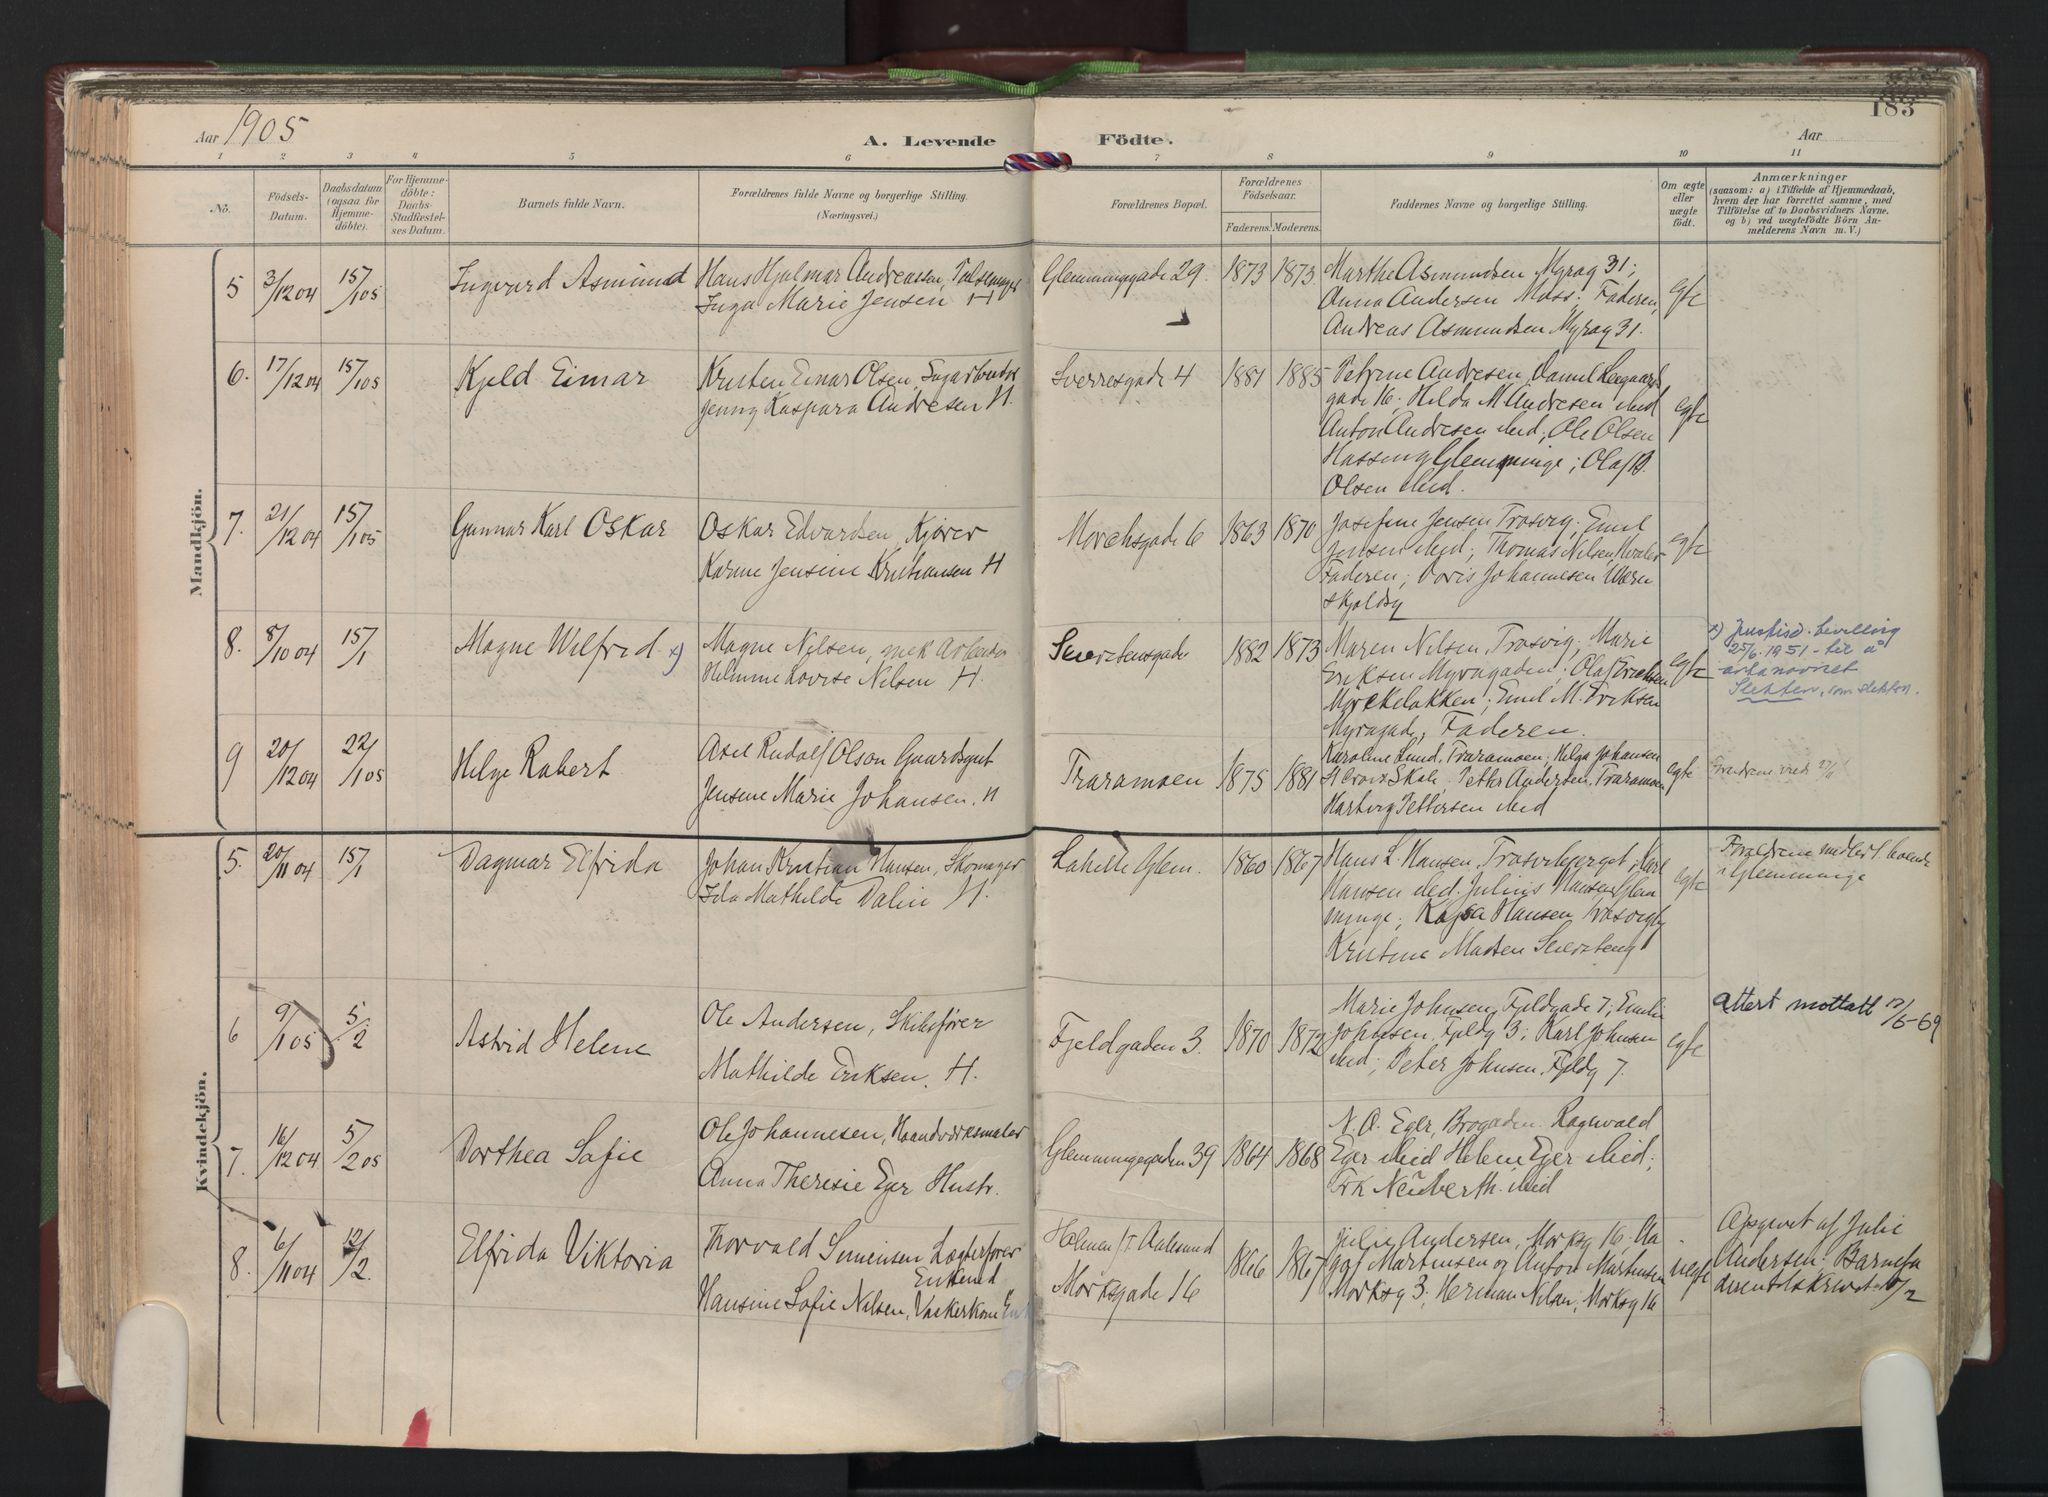 183
Aar 1905
A. Levende Födte.
Aar
1 2 3 4 5 6 7 8 9 10 11
No.
Födsels-
Datum.
Daabsdatum
(ogsaa for
Hjemme-
döbte).
For Hjemme-
döbte:
Daabs-
Stadfæstel-
ses Datum.
Barnets fulde Navn.
Forældrenes fulde Navne og borgerlige Stilling.
(Næringsvei.)
Forældrenes Bopæl.
Forældrenes
Födselsaar.
Faderens. Moderens.
Faddernes Navne og borgerlige Stilling.
Om ægte
eller
uægte
födt.
Anmærkninger
(saasom: a) i Tilfælde af Hjemmedaab,
hvem der har forrettet samme, med
Tilföielse af to Daabsvidners Navne,
og b) ved uægtefödte Börn An-
melderens Navn m. V.)
Mandkjön.
5 3/12 04 15/1 05 Ingvard Asmund
Hans Hjalmar Andreassen,
Inga Marie Jensen H
Glemminggade 29 1873 1873
Marthe Asmundsen Myrag 31;
Anna Andersen Moss; Faderen,
Andreas Asmundsen Myrag 31.
egte
6. 17/12 04 15/1 05 Kjeld Eimar
Kristen Einar Olsen,
Jenny Kaspara Andresen H.
Sverresgade 4 1881 1885
Petrine Andresen, Daniel Leegaards
gade 16. Hilda M Andresen ibid
Anton Andresen ibid; Ole Olsen
Hassing Glemminge; Olaf
Olsen ibid.
egte
7. 21/12 04 15/1 05 Gunnar Karl Oskar
Oskar Edvardsen, Kjører
Karine Jensine Kristiansen H
Morchsgade 6 1863 1870
Josefine Jensen Trosvig; Emil
Jensen ibid; Thomas Nilsen,
Faderen; Doris Johannesen
egte
8. 8/10 04 15/1 Magne Wilfred x)
Magne Nilsen, mek Arbeider
Helmine Lovise Nilsen H.
1882 1873
Maren Nilsen, Trosvig; Marie
Eriksen Myragaden; Olaf Eriksen
Emil M. Eriksen
Myragade, Faderen.
egte
x) Justisd. bevilling
25/6.1951 - til å
anta navnet
Slekten, som slektsn.
9 20/12 04 22/1 05 Helge Robert
Axel Rudolf Olson Gaardsgut
Jensine Marie Johansen. H
Traramoen 1875 1881
Karoline Lund, Traramoen; Helga Johansen
St Croix Skole, Petter Andersen, Traramoen
Hartvig Pettersen ibid
egte
Kvindekjön.
5. 20/11 04 15/1 Dagmar Elfrida
Johan Kristian Hansen, Skomager
Ida Mathilde Dalin H.
Labette Glem. 1860 1867
Hans L. Hansen, Trosvikberget; Karl
Hansen ibid. Julius Hansen, Glem
minge; Kajsa Hansen
Kristine Madsen
egte
Forældrene
i Glemminge
6 9/1 05 5/2 Astrid Helene
Ole Andersen, Skibsfører
Mathilde Eriksen. H.
Fjeldgaden 3. 1870 1872
Marie Johnsen, Fjeldgade 7; Emilie
Johnsen, Fjeldg 3; Karl Johnsen
ibid; Peter Johnsen, Fjeldg 7.
egte
attest mottatt 12/5-69
7. 16/12 04 5/2 05 Dorthea Sofie
Ole Johannesen, Haandværksmaler
Anna Theresie Eger Hustr.
Glemmingegaden 39 1864 1868
N. A. Eger, Brogaden. Ragnvald
Eger ibid Helene Eger ibid;
Frk Neüberth. ibid
8. 6/11 04 12/2. Elfrida Viktoria
Thorvald Simensen Lægterfører
Enkemd
Hansine Sofie Nilsen, Vaskerkone
Aalesund
Morksgade 16 1866 1867
Julie Andersen, Morksg 16. Aa
got Martinsen og Anton Martinsen
Morksg 3; Herman Nilsen, Morksg 16
uegte
Opgivet af Julie
Andersen; Barnefa